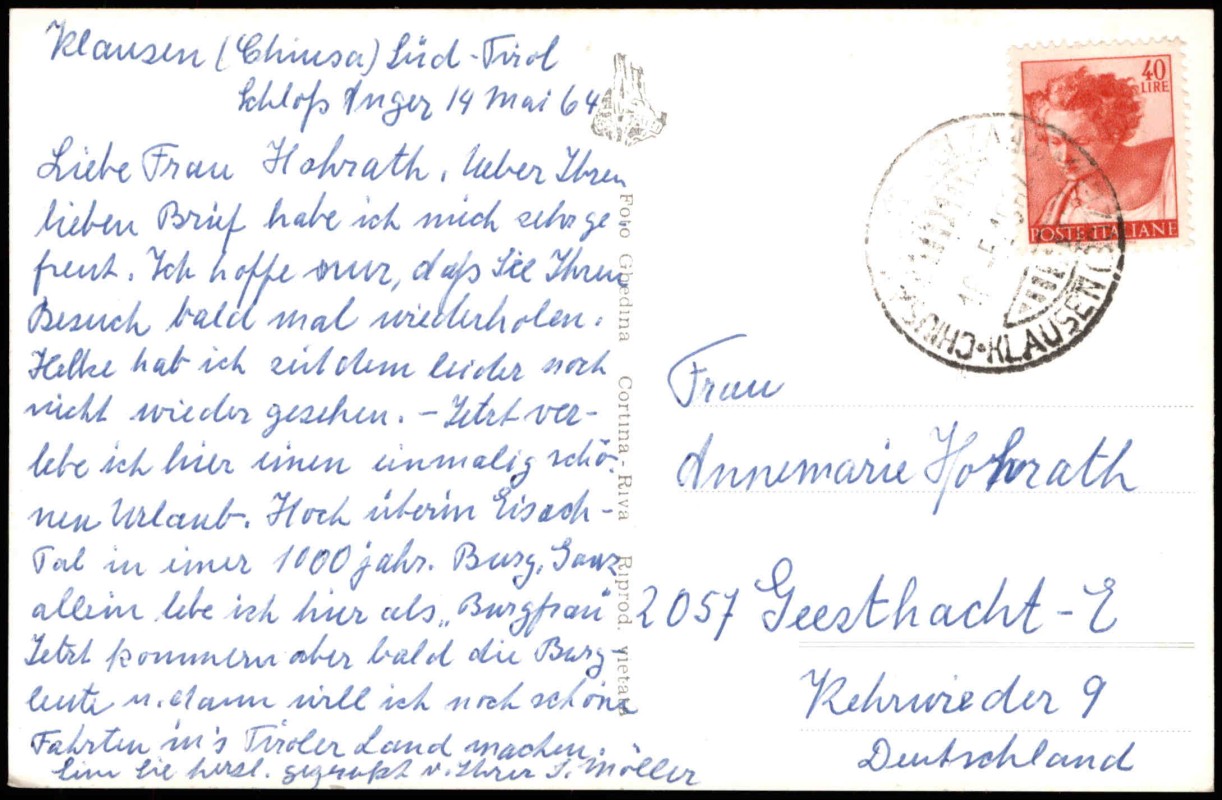 Klausen (Chiusa) Süd-Tirol
Schloß Anger 14 Mai 64
Liebe Frau Hohrath, Ueber Ihren
lieben Brief habe ich mich sehr ge
freut. Ich hoffe nur, daß Sie Ihren
Besuch bald mal wiederholen.
Helke hab ich seitdem leider noch
nicht wieder gesehen. - Jetzt ver-
lebe ich hier einen einmalig schö-
nen Urlaub. Hoch überm Eisack-
Tal in einer 1000 jahr. Burg. Ganz
allein lebe ich hier als „Burgfrau"
Jetzt kommen aber bald die Burg-
leute u. dann will ich noch schöne
Fahrten in's Tiroler Land machen.
Sie herzl. gegrüßt v. Ihrer S. Möller
Foto Ghedina Cortina - Riva Riprod. vietata
40
LIRE
POSTE ITALIANE
KLAUSEN
Frau
Annemarie Hohrath
2057 Geesthacht - E
Kehrwieder 9
Deutschland